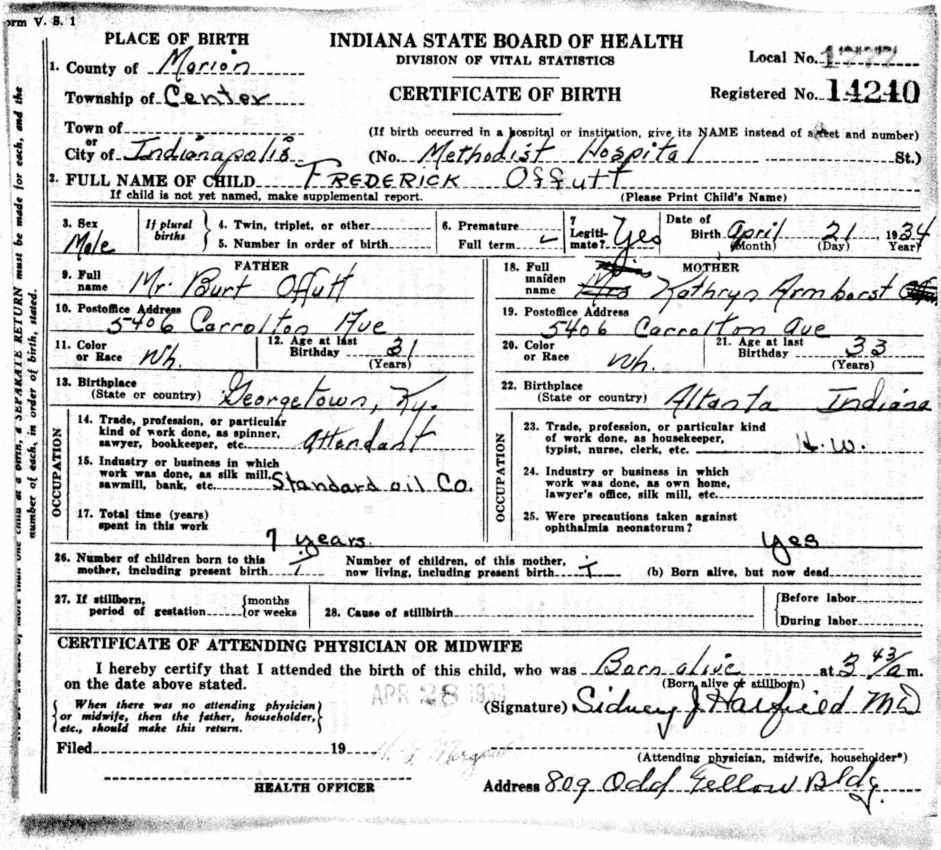 Form V. S. 1
PLACE OF BIRTH
1. County of Marion
Township of Center
Town of
or
City of Indianapolis
INDIANA STATE BOARD OF HEALTH
DIVISION OF VITAL STATISTICS
CERTIFICATE OF BIRTH
Local No.
Registered No. 14240
(If birth occurred in a hospital or institution, give its NAME instead of street and number)
(No. Methodist Hospital St.)
2. FULL NAME OF CHILD FREDERICK OFFUTT
If child is not yet named, make supplemental report. (Please Print Child's Name)
3. Sex Male
If plural births
4. Twin, triplet, or other
5. Number in order of birth
6. Premature
Full term ✓
7 Legiti-mate? Yes
Date of Birth April 21 1934
(Month) (Day) Year)
FATHER
9. Full name Mr. Burt Offutt
10. Postoffice Address
5406 Carrolton Ave
11. Color or Race Wh.
12. Age at last Birthday 31 (Years)
13. Birthplace (State or country) Georgetown, Ky.
OCCUPATION
14. Trade, profession, or particular
kind of work done, as spinner,
sawyer, bookkeeper, etc. Attendant
15. Industry or business in which
work was done, as silk mill,
sawmill, bank, etc. Standard oil Co.
17. Total time (years)
spent in this work 7 years.
MOTHER
18. Full maiden name Mrs Kathryn Armborst
19. Postoffice Address
5406 Carrolton Ave
20. Color or Race Wh.
21. Age at last Birthday 33 (Years)
22. Birthplace (State or country) Altanta Indiana
OCCUPATION
23. Trade, profession, or particular kind
of work done, as housekeeper,
typist, nurse, clerk, etc. H.W.
24. Industry or business in which
work was done, as own home,
lawyer's office, silk mill, etc.
25. Were precautions taken against
ophthalmia neonatorum? Yes
26. Number of children born to this
mother, including present birth 1
Number of children, of this mother,
now living, including present birth 1
(b) Born alive, but now dead
27. If stillborn,
period of gestation {months
or weeks
28. Cause of stillbirth
{Before labor
During labor
CERTIFICATE OF ATTENDING PHYSICIAN OR MIDWIFE
I hereby certify that I attended the birth of this child, who was Born alive at 3 43/a m.
on the date above stated. (Born alive or stillborn)
APR 28 193
{ When there was no attending physician
or midwife, then the father, householder,
etc., should make this return. }
(Signature) Sidney J Hatfield MD
Filed 19
(Attending physician, midwife, householder*)
HEALTH OFFICER
Address 809 Odd Fellow Bldg.
number of each, in order of birth, stated.